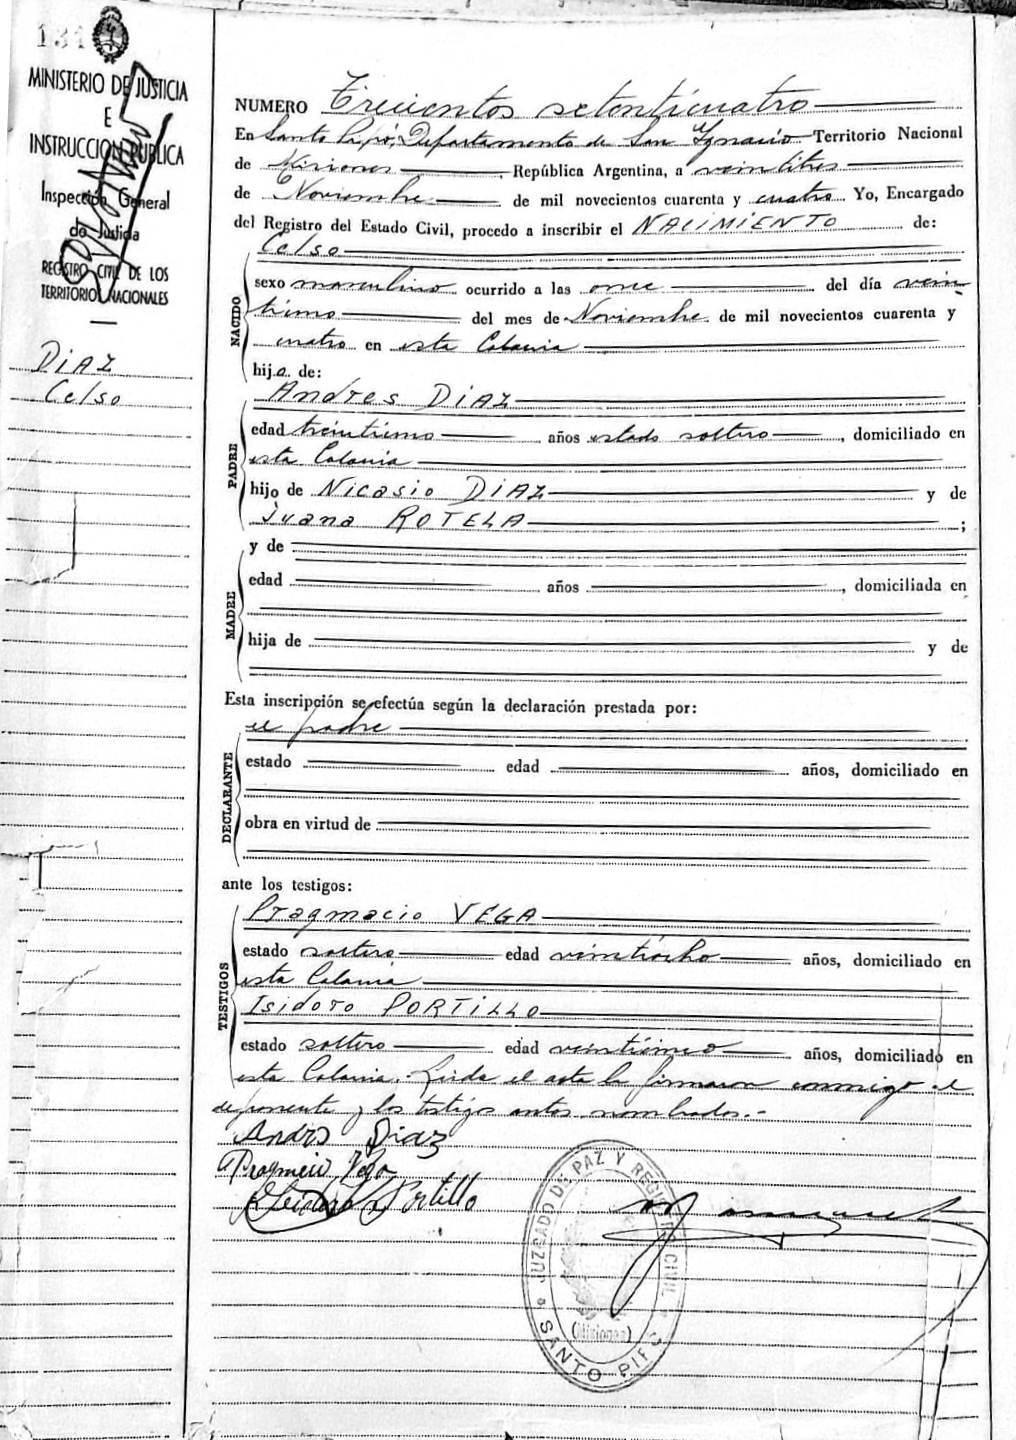 131
MINISTERIO DE JUSTICIA
E
INSTRUCCION PUBLICA
Inspección General
de Justicia
REGISTRO CIVIL DE LOS
TERRITORIOS NACIONALES
DIAZ
Celso
NUMERO Trecientos setenticuatro
En Santo Pipó Departamento de San Ygnacio Territorio Nacional
de Misiones, República Argentina, a veintitres
de Noviembre de mil novecientos cuarenta y cuatro Yo, Encargado
del Registro del Estado Civil, procedo a inscribir el NACIMIENTO de:
Celso
NACIDO
sexo masculino ocurrido a las once del día vein
tiuno del mes de Noviembre de mil novecientos cuarenta y
cuatro en esta Colonia
hijo de:
Andres DIAZ
PADRE
edad treintiuno años estado soltero, domiciliado en
esta Colonia
hijo de Nicasio DIAZ y de
Juana ROTELA;
y de
MADRE
edad años, domiciliada en
hija de y de
Esta inscripción se efectúa según la declaración prestada por:
el padre
DECLARANTE
estado edad años, domiciliado en
obra en virtud de
ante los testigos:
Pragmacio VEGA
TESTIGOS
estado soltero edad veintiocho años, domiciliado en
esta Colonia
Isidoro PORTILLO
estado soltero edad años, domiciliado en
esta Colonia. Leida el acta la firmaron conmigo el
deponente y los testigos antes nombrados.-
Andrs Diaz
Pragmcio Vega
Isidoro Portillo
JUZGADO DE PAZ Y REGISTRO CIVIL
(Misiones)
SANTO PIPÓ